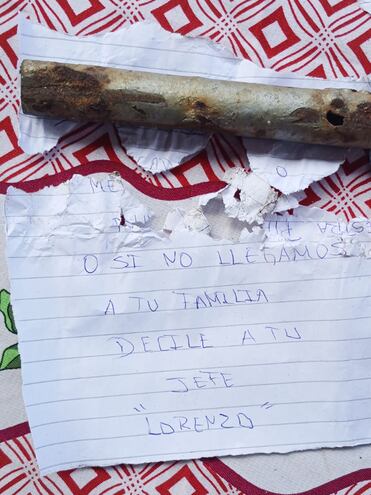 O
ME
O SI NO LLEGAMOS
A TU FAMILIA
DECILE A TU
JEFE
"LORENZO"